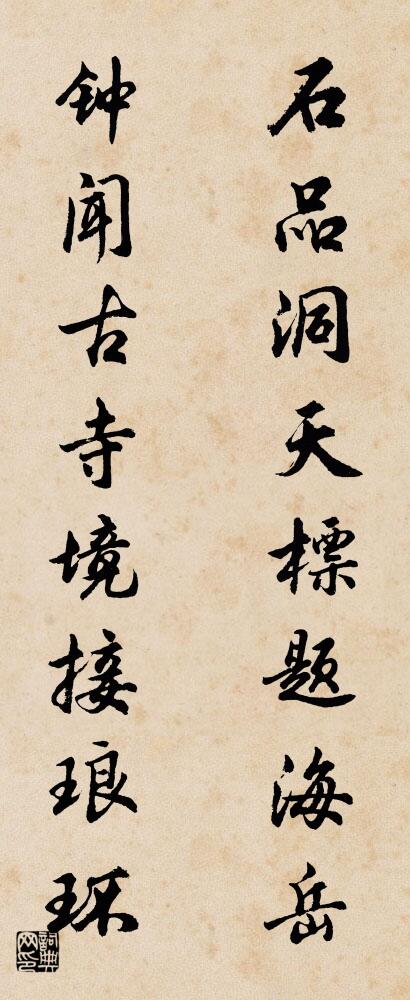 石品洞天標题海岳
钟闻古寺境接琅环
詞典网印